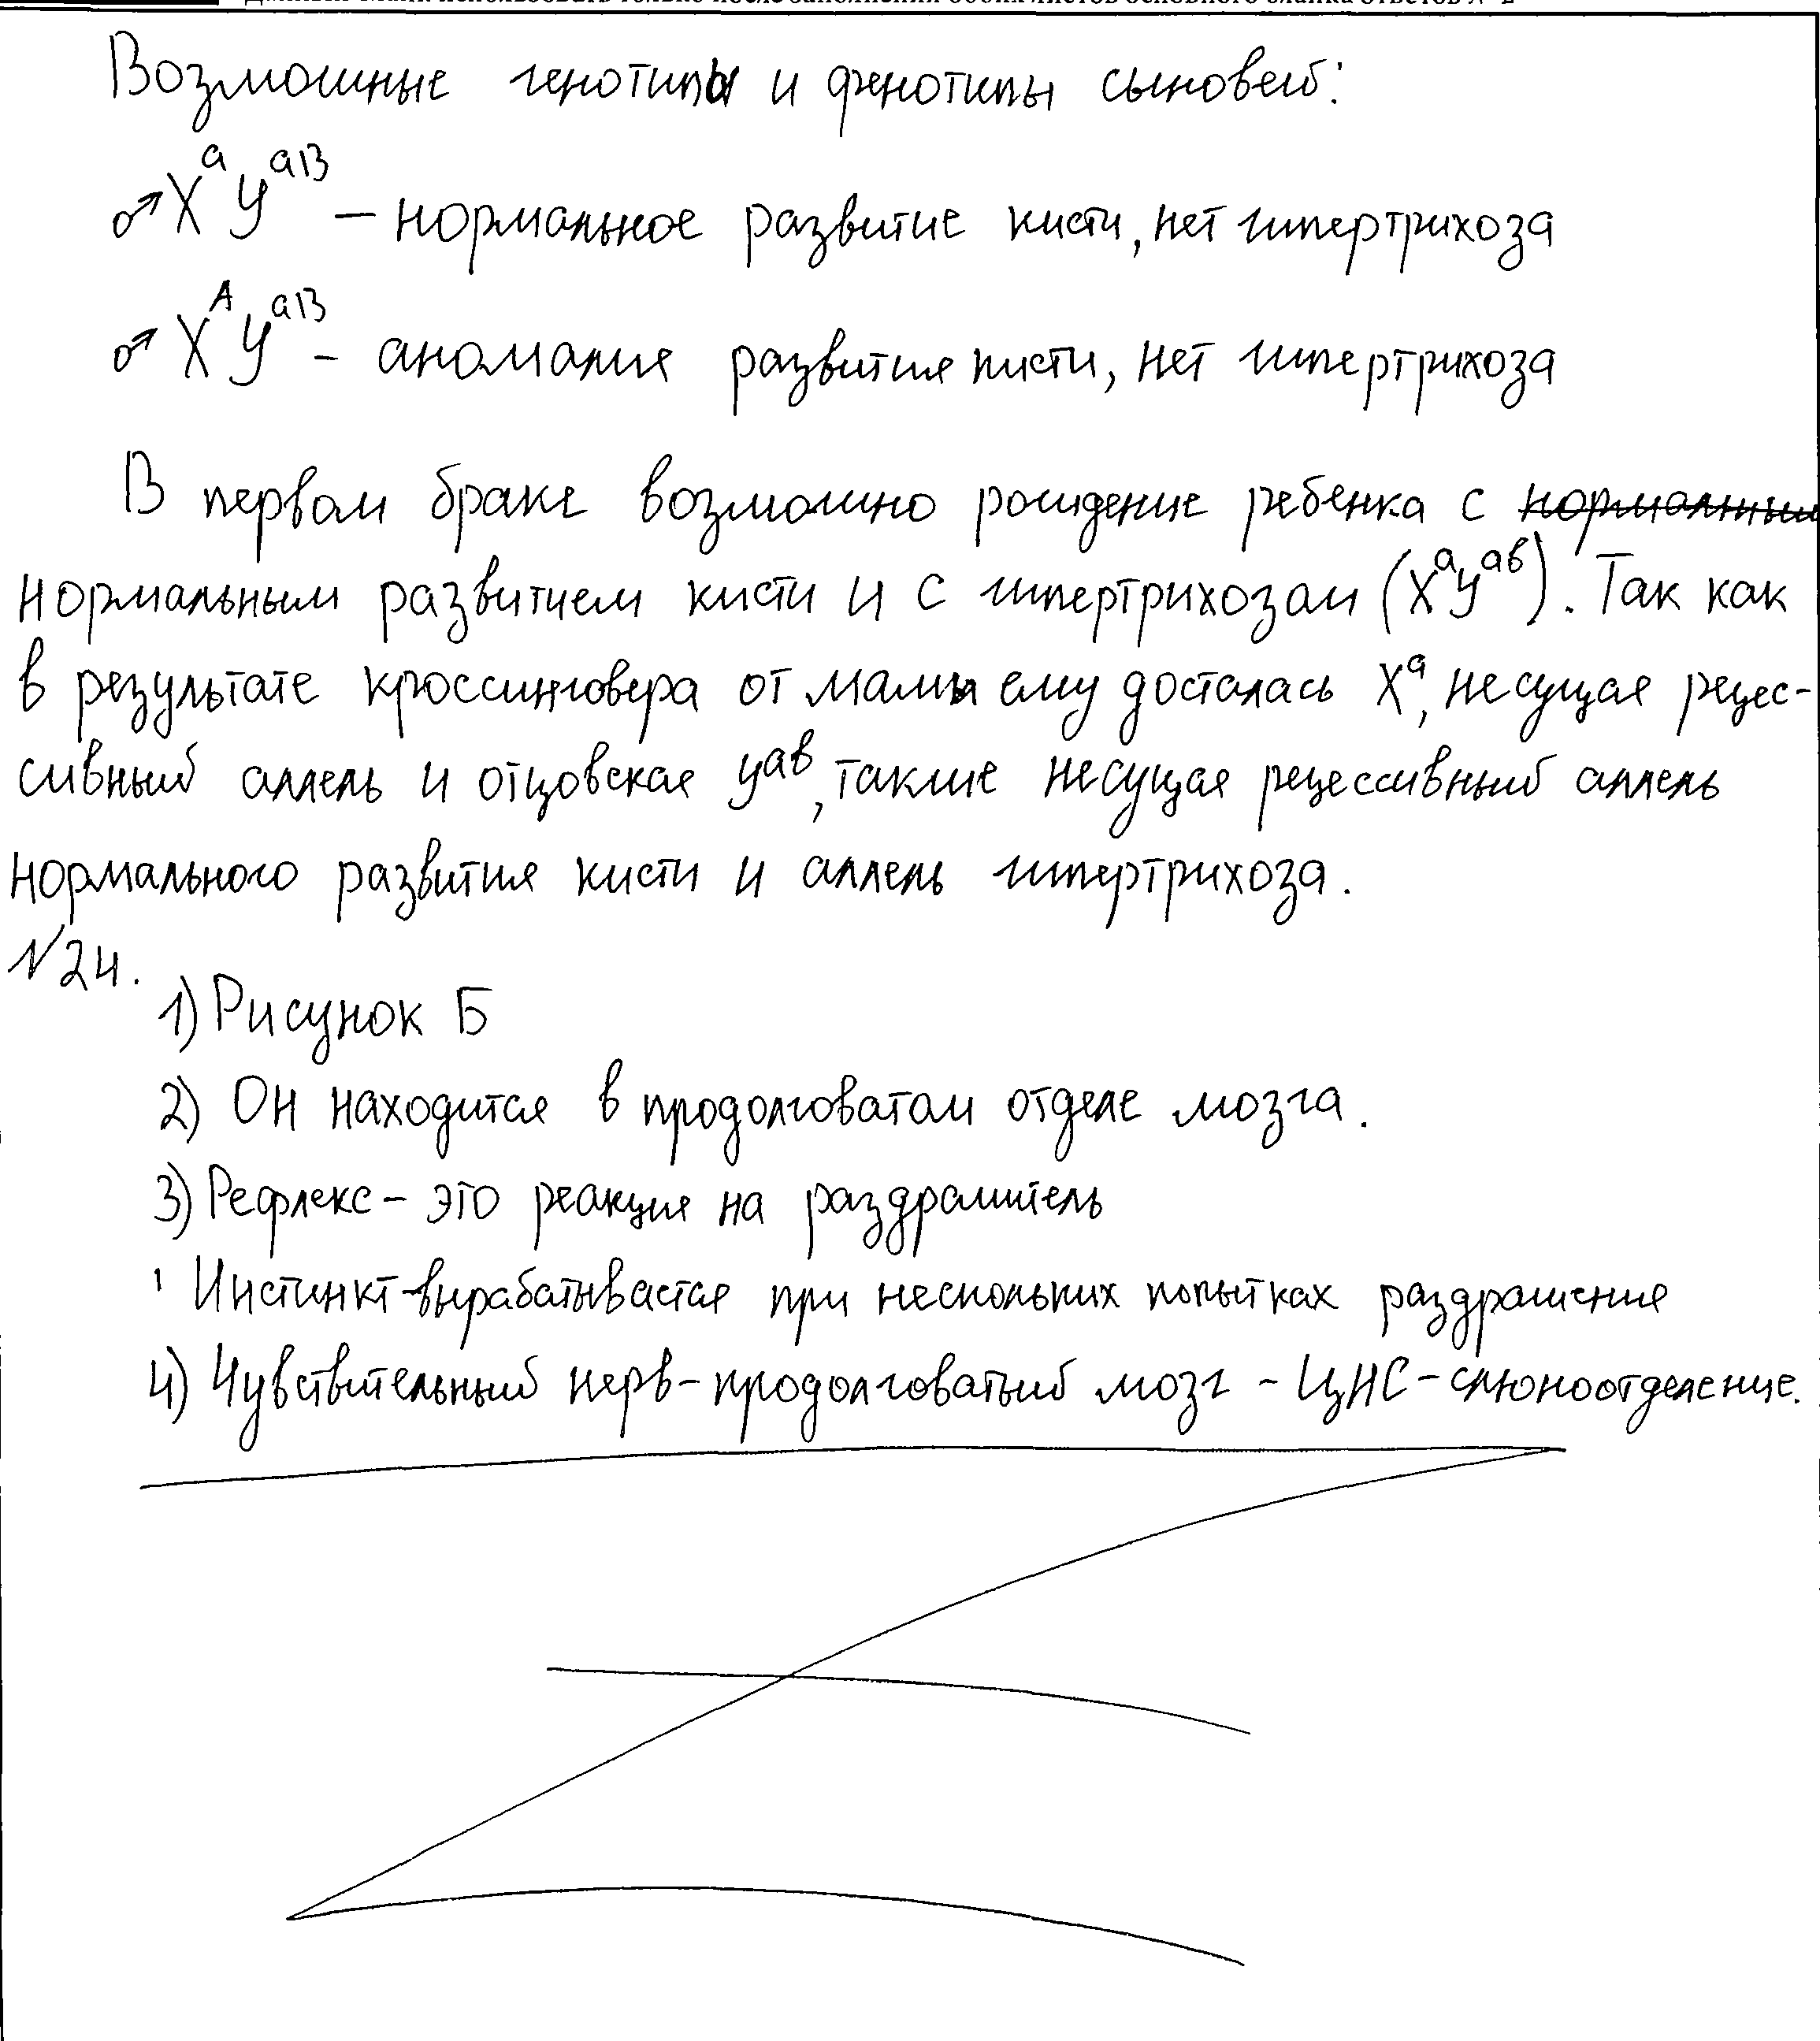 Возможные генотипы и фенотипы сыновей:
♂XᵃYᵃᴮ – нормальное развитие кисти, нет гипертрихоза
♂XᴬYᵃᴮ – аномалия развития кисти, нет гипертрихоза
В первом браке возможно рождение ребенка с нормальным
нормальным развитием кисти и с гипертрихозом (XᵃYᵃᵇ). Так как
в результате кроссинговера от мамы ему досталась Xᵃ, несущая рецес-
сивный аллель и отцовская Yᵃᵇ, также несущая рецессивный аллель
нормального развития кисти и аллель гипертрихоза.
№24.
1) Рисунок Б
2) Он находится в продолговатом отделе мозга.
3) Рефлекс – это реакция на раздражитель
Инстинкт-вырабатывается при нескольких попытках раздражения
4) Чувствительный нерв-продолговатый мозг - ЦНС-слюноотделение.